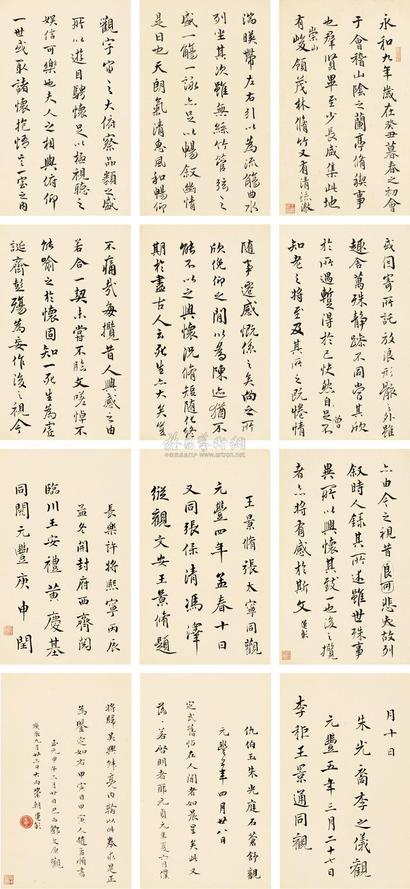 永和九年歲在癸丑暮春之初會
于會稽山陰之蘭亭脩稧事
也羣賢畢至少長咸集此地
崇山
有峻領茂林脩竹又有清流激
湍暎帶左右引以為流觴曲水
列坐其次雖無絲竹管弦之
盛一觴一詠亦足以暢敘幽情
是日也天朗氣清惠風和暢仰
觀宇宙之大俯察品類之盛
所以遊目騁懷足以極視聽之
娛信可樂也夫人之相與俯仰
一世或取諸懷抱悟言一室之內
或因寄所託放浪形骸之外雖
趣舍萬殊靜躁不同當其欣
於所遇暫得於己快然自足不
知老之將至及其所之既惓情
隨事遷感慨係之矣向之所
欣俛仰之閒以為陳迹猶不
能不以之興懷況脩短隨化終
期於盡古人云死生亦大矣豈
不痛哉每攬昔人興感之由
若合一契未嘗不臨文嗟悼不
能喻之於懷固知一死生為虛
誕齊彭殤為妄作後之視今
亦由今之視昔悲夫故列
敘時人錄其所述雖世殊事
異所以興懷其致一也後之攬
者亦將有感於斯文
王景脩張大寧同觀
元豐四年孟春十日
又同張保清馮澤
縱觀文安王景脩題
長樂許將熙寧丙辰
孟冬開封府西齋閱
臨川王安禮黃慶基
同閱元豐庚申閏
月十日
朱光裔李之儀觀
元豐五年三月二十七
李秬王景通同觀
仇伯玉朱光庭石蒼舒觀
元豐 年四月廿八日
定武舊帖在人間者如晨星矣此又